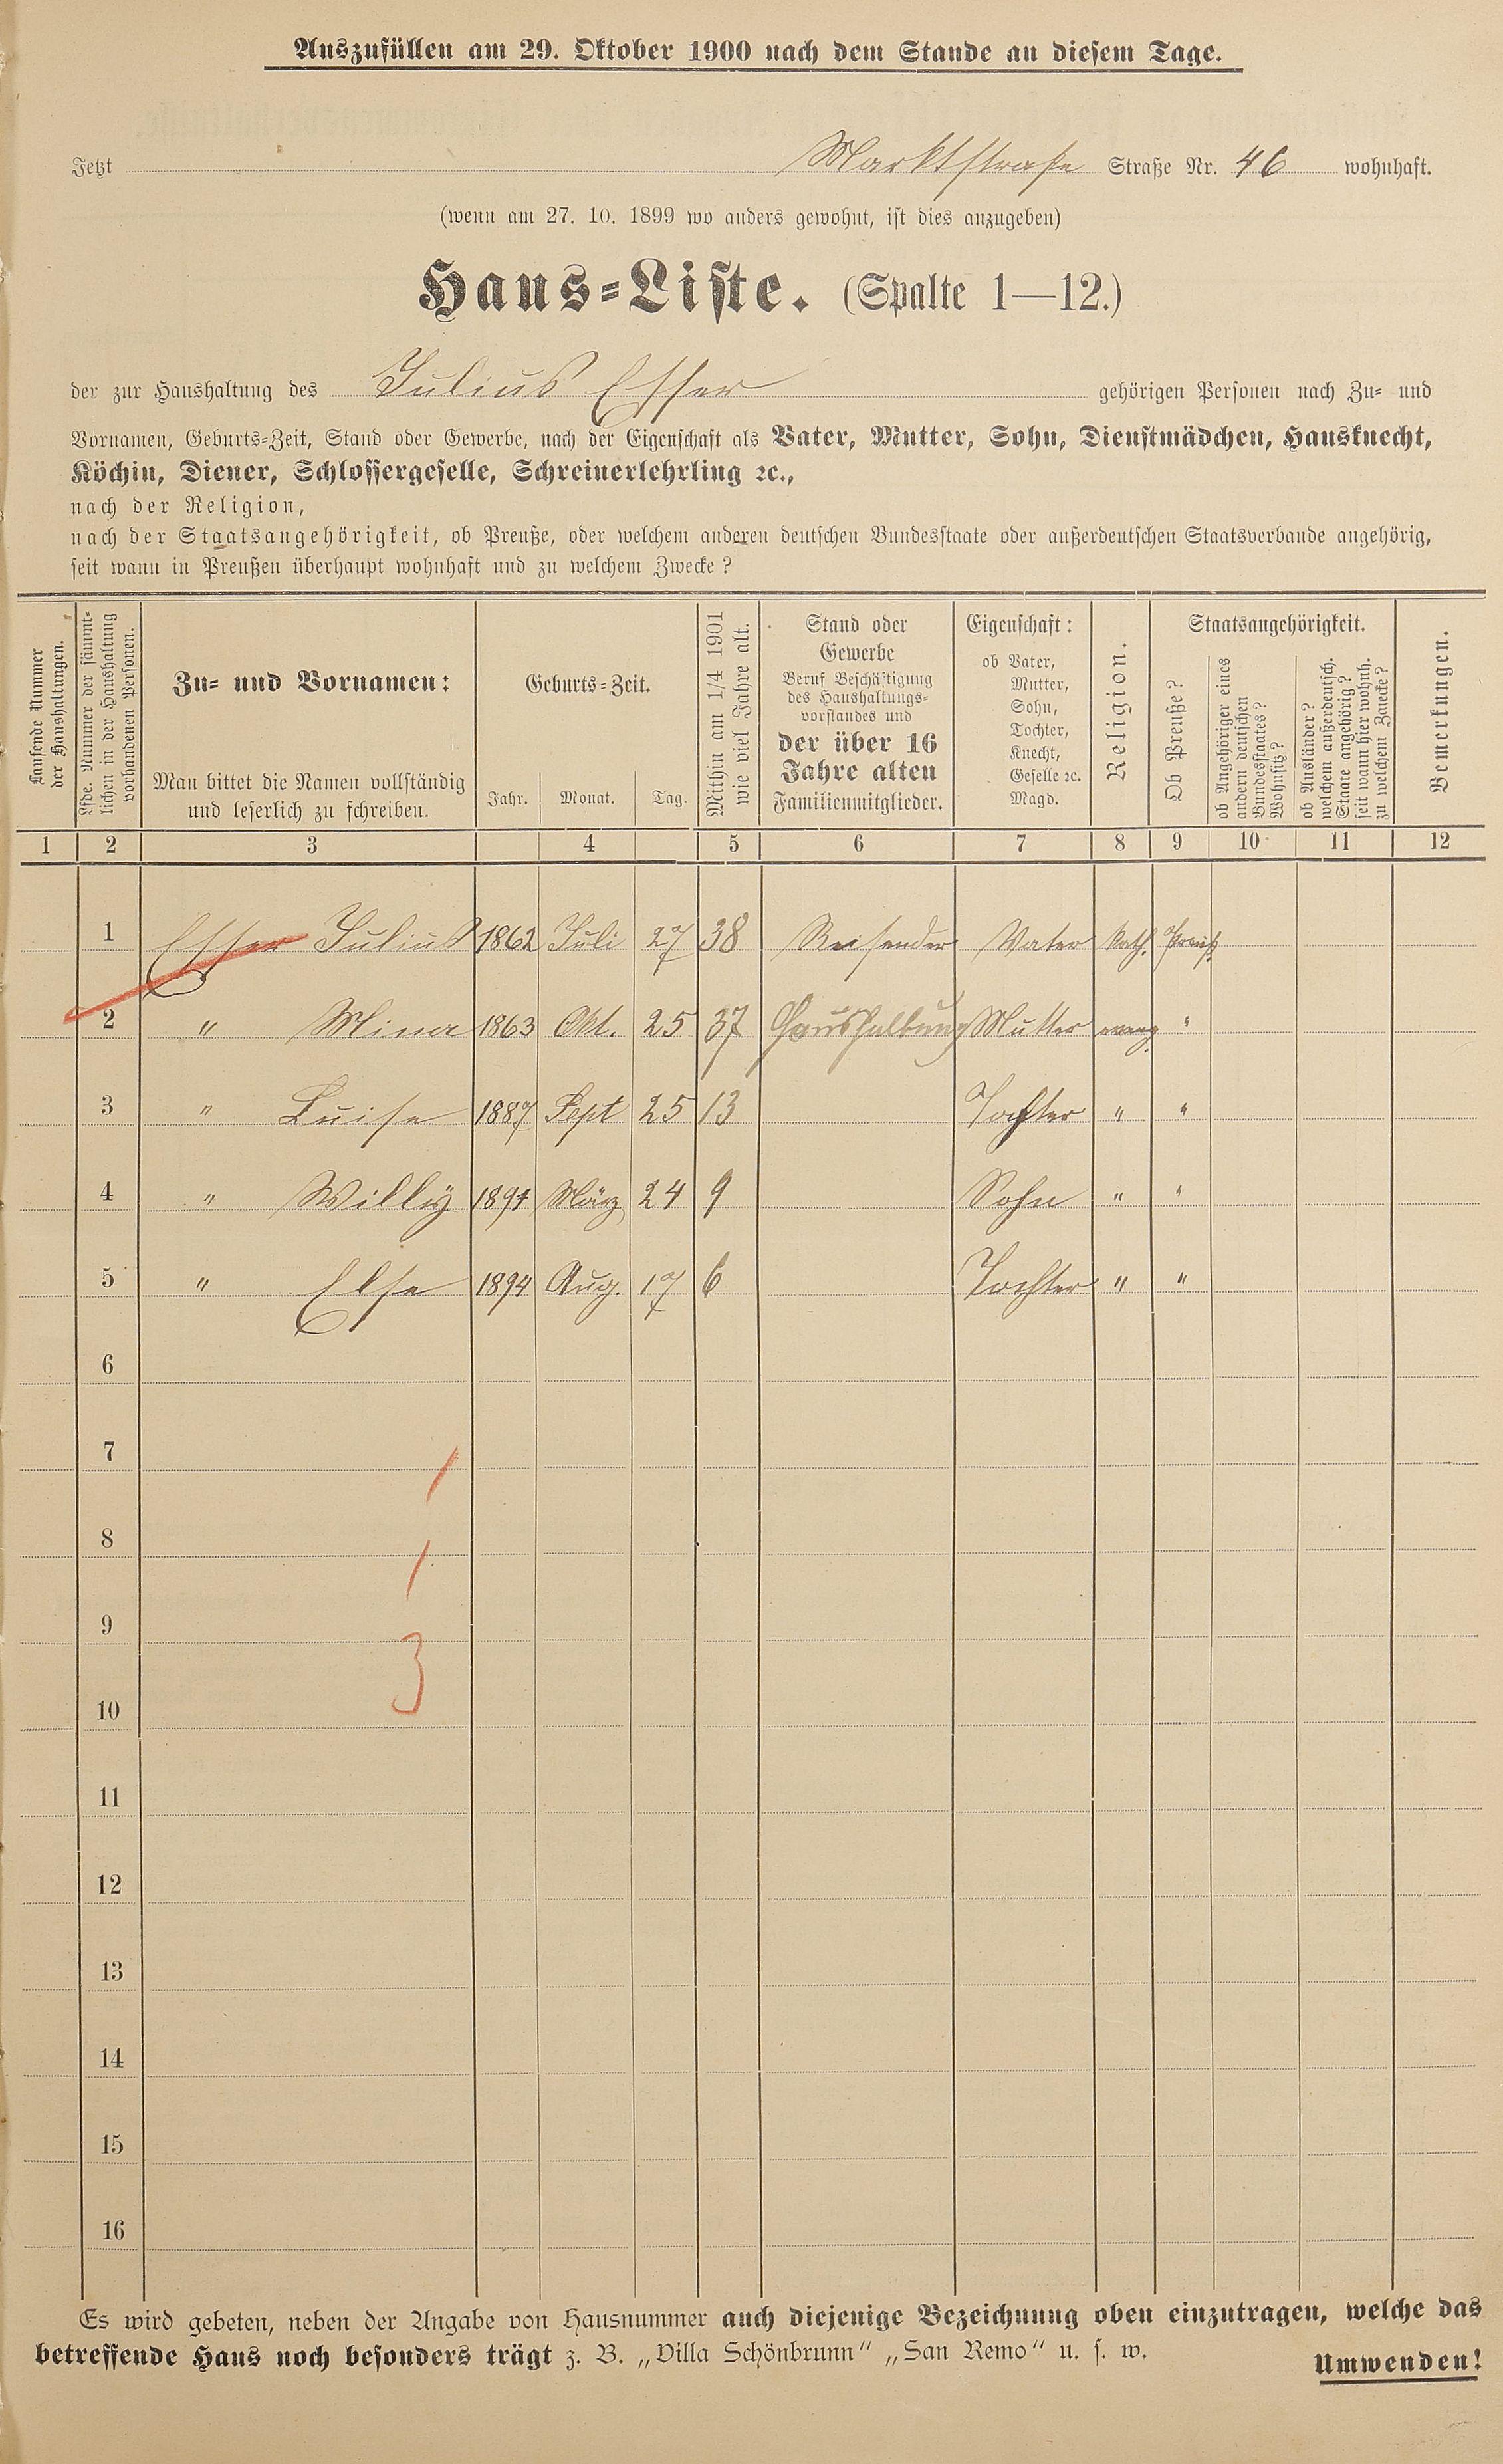 Auszufüllen am 29. Oktober 1900 nach dem Stande an diesem Tage.
Jetzt Marktstraße Straße Nr. 46 wohnhaft.
(wenn am 27. 10. 1899 wo anders gewohnt, ist dies anzugeben)
Haus=Liste. (Spalte 1—12.)
der zur Haushaltung des Julius Esser gehörigen Personen nach Zu= und
Vornamen, Geburts=Zeit, Stand oder Gewerbe, nach der Eigenschaft als Vater, Mutter, Sohn, Dienstmädchen, Hausknecht,
Köchin, Diener, Schlossergeselle, Schreinerlehrling ꝛc.,
nach der Religion,
nach der Staatsangehörigkeit, ob Preuße, oder welchem anderen deutschen Bundesstaate oder außerdeutschen Staatsverbande angehörig,
seit wann in Preußen überhaupt wohnhaft und zu welchem Zwecke?
Laufende Nummer
der Haushaltungen.
Lfde. Nummer der sämmt=
lichen in der Haushaltung
vorhandenen Personen.
Zu= und Vornamen:
Man bittet die Namen vollständig
und leserlich zu schreiben.
Geburts=Zeit.
Jahr. Monat. Tag.
Mithin am 1/4 1901
wie viel Jahre alt.
Stand oder
Gewerbe
Beruf Beschäftigung
des Haushaltungs=
vorstandes und
der über 16
Jahre alten
Familienmitglieder.
Eigenschaft:
ob Vater,
Mutter,
Sohn,
Tochter,
Knecht,
Geselle ꝛc.
Magd.
Religion.
Staatsangehörigkeit.
Ob Preuße?
ob Angehöriger eines
andern deutschen
Bundesstaates?
Wohnsitz?
ob Ausländer?
welchem außerdeutsch.
Staate angehörig?
seit wann hier wohnh.
zu welchem Zwecke?
Bemerkungen.
1 2 3 4 5 6 7 8 9 10 11 12
1 Esser Julius 1862 Juli 27 38 Reisender Vater kath. Preuß.
2 " Mina 1863 Okt. 25 37 Haushaltung Mutter evang. "
3 " Luise 1887 Sept 25 13 Tochter " "
4 " Willy 1891 März 24 9 Sohn " "
5 " Else 1894 Aug. 17 6 Tochter " "
6
7
1
8
1
9
3
10
11
12
13
14
15
16
Es wird gebeten, neben der Angabe von Hausnummer auch diejenige Bezeichnung oben einzutragen, welche das
betreffende Haus noch besonders trägt z. B. „Villa Schönbrunn“ „San Remo“ u. s. w.
Umwenden!